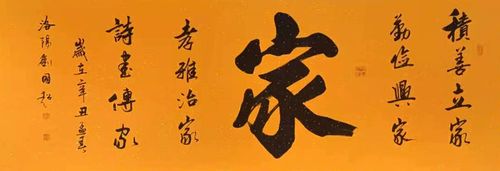 積善立家
勤儉興家
家
孝雅治家
詩書傳家
歲在辛丑孟夏
洛陽劉國